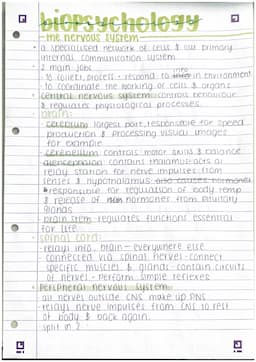 biopsychology
- the nervous system -
• a specialised network of cells & our primary
internal communication system
• 2 main jobs
- to collect, process + respond to info in environment
- to coordinate the working of cells & organs
• central nervous system: controls behaviour
& regulates physiological processes.
brain:
- cerebrum largest part, responsible for speed
production & processing visual images
for example
- cerebellum controls motor skills & balance
- diencephalon: contains thalamus: acts as
relay station for nerve impulses from
senses & hypothalamus also causes hormones
* responsible for regulation of body temp
& release of hormones from pituitary
glands
- brain stem - regulates functions essential
for life
spinal cord:
- relays info, brain - everywhere else
connected via spinal nerves - connect
specific muscles & glands - contain circuits
of nerves - perform simple reflexes
• peripheral nervous system
- all nerves outside CNS make up PNS
- relays nerve impulses from CNS to rest
of body & back again.
split in 2